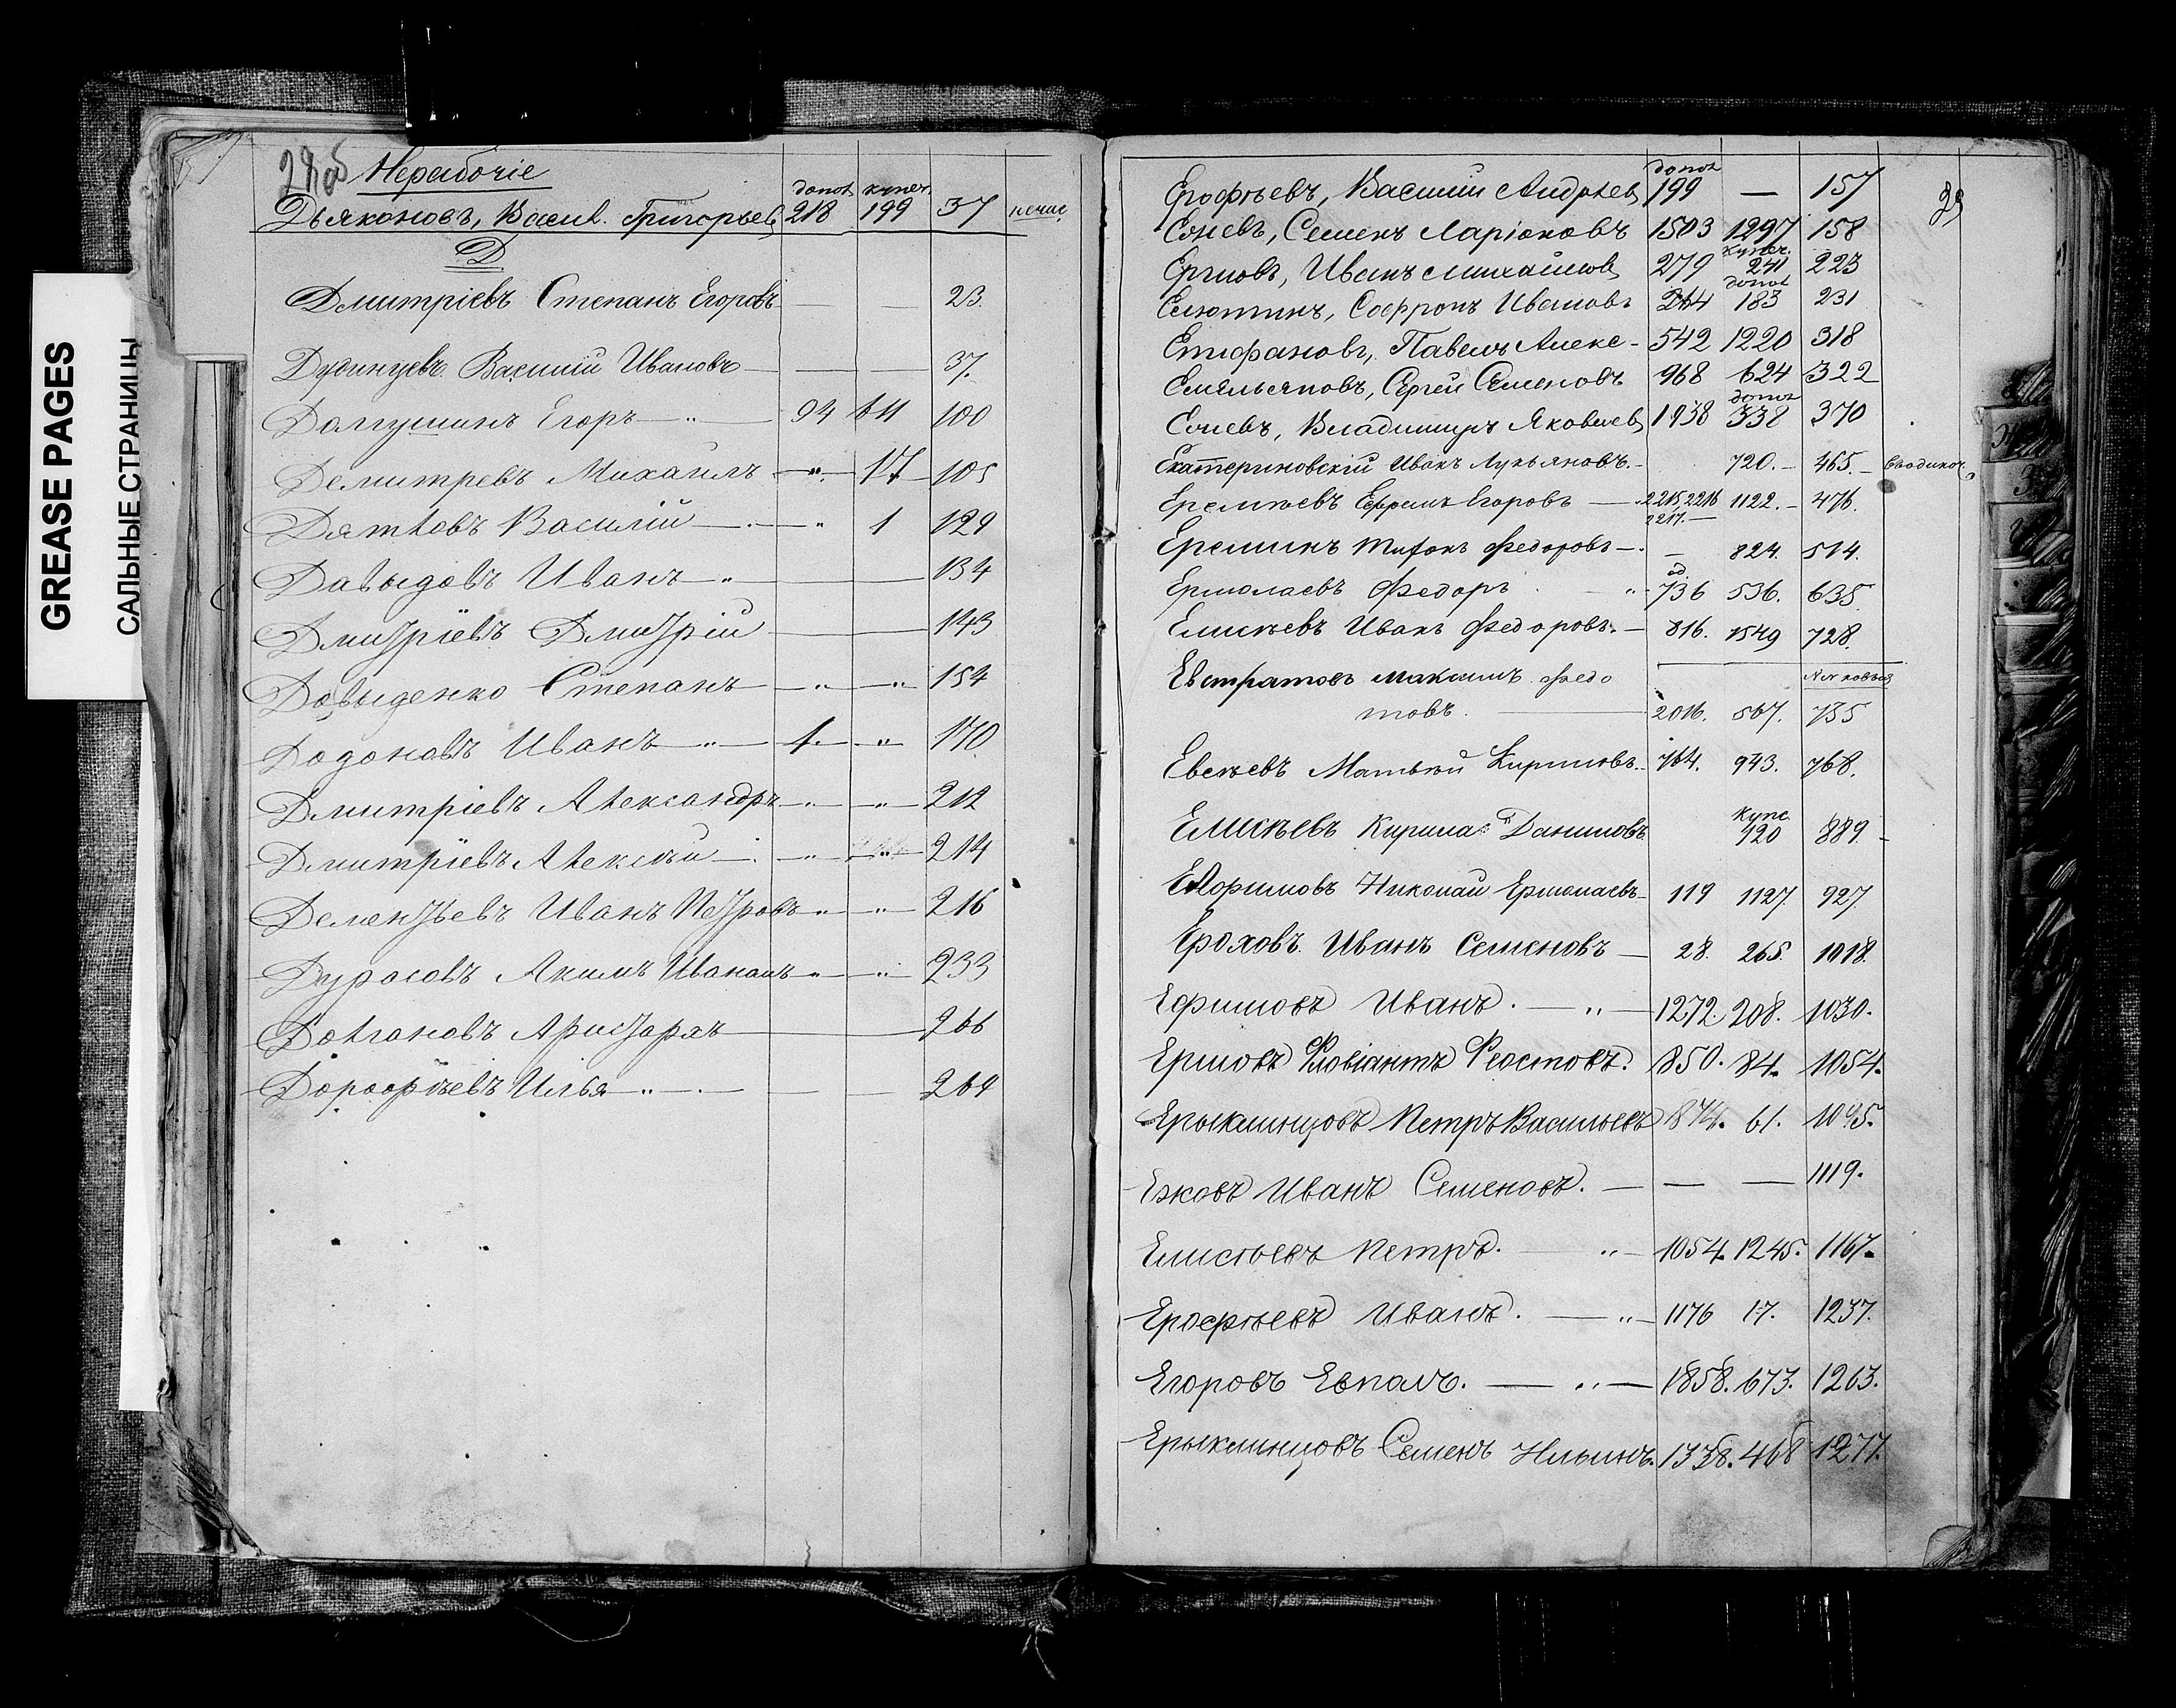 GREASE PAGES
САЛЬНЫЕ СТРАНИЦЫ
28об Нерабочіе
допол купеч.
Дьяконовъ, Васил. Григорьев 218 199 37
Д
Дмитріевъ Степанъ Егоровъ — — 23.
Василій Ивановъ — — 37.
Долгушинъ Егоръ — " — 94 611 100
Демитревъ Михаилъ — " — 17 — 105
Дятловъ Василій — " 1 129
Давыдовъ Иванъ — " — 134
Дмитріевъ Дмитрій — 143
Довыденко Степанъ — " — " 154
Додоновъ Иванъ — " — 1. — " 170
Дмитріевъ Александръ — " — " — 212
Дмитріевъ Алексѣй — " — " — 214
Дементьевъ Иванъ Петровъ — " — " — 216
Дурасовъ Акимъ — " — " — 233
Долгановъ Аристархъ — 266
Дорофѣевъ Илья — " — — — 269
допол
Ерофѣевъ, Василій Андрѣев 199 — 157
39
Семенъ Ларіоновъ 1503 1297 158
купеч.
Ершовъ, Иванъ Михайлов 279 241 223
допол
Елютинъ, Софронъ Ивановъ 264 183 231
Епифановъ, Павелъ Алекс- 542 1220 318
Емельяновъ, Сергѣй Семеновъ 968 624 322
допол
Владимиръ Яковлев 1938 338 370
Екатериновскій Иванъ Лукьяновъ. — 720. — 465. —
Еремѣевъ Ефремъ Егоровъ — 2215,2216 1122. — 476.
2217. —
Ереминъ Тифонъ Федоровъ — — 824. 514.
Ермолаевъ Федоръ " 736 536. 635.
Елисѣевъ Иванъ Федоровъ. — 816. 1549 728.
Евстратовъ Максимъ Федо
товъ. — 2016. 567. 755
Евсѣевъ Матвѣй Кириловъ. 764. 943. 768.
купе
Елисѣевъ Кирила Даниловъ 920 889. —
Евфримовъ Николай Ермолаевъ — 119 1127. 927.
Ероховъ. Иванъ Семеновъ — 28. 265. 1018.
Ефимовъ Иванъ. — " — 1272. 208. 1030.
Ершовъ 850. 84. 1054.
Ерыклинцовъ Петръ Васильевъ 874. 61. 1095.
Ежовъ Иванъ Семеновъ. — — — 1119.
Елисѣевъ Петръ. — " — 1054. 1245. 1167.
Ерофѣевъ Иванъ. — " — 1176 17. 1237.
Егоровъ Евпалъ. — " — 1858. 673. 1263.
Ерыклинцовъ Семенъ Ильинъ. 1338. 468 1277.